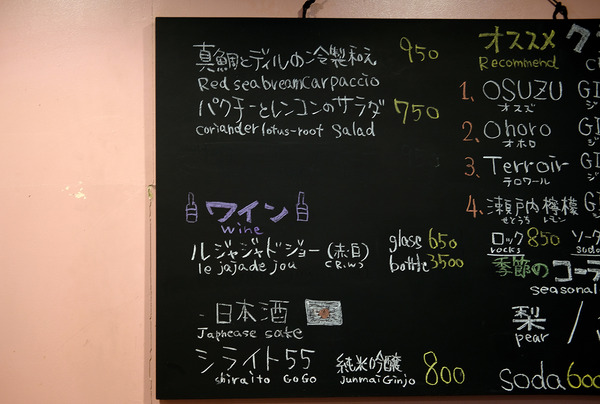 真鯛とディルの冷製和え 950
Red seabream carpaccio
パクチーとレンコンのサラダ 750
coriander lotus-root salad
ワイン
wine
ル ジャジャド ジョー (赤白) glass 650
le jajade jou (R.W) bottle 3500
日本酒
Japnease sake
シライト55 純米吟醸 800
shiraito GoGo JunmaiGinjo
オススメ ク
Recommend
1. OSUZU GI
オスズ ジ
2. Ohoro GI
オホロ ジ
3. Terroir GI
テロワール ジ
4. 瀬戸内檸檬 GI
せとうち レモン ジ
ロック 850 ソーダ
rocks soda
季節のコー
seasonal
梨 /
pear
soda 600